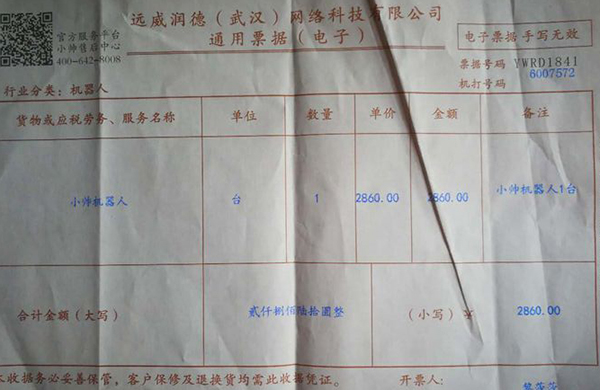 远威润德（武汉）网络科技有限公司
通用票据（电子）
官方服务平台
小帅售后中心
400-642-8008
电子票据手写无效
票据号码 YWRD1841
机打号码 6007572
行业分类：机器人
货物或应税劳务、服务名称 单位 数量 单价 金额 备注
小帅机器人 台 1 2860.00 2860.00 小帅机器人1台
合计金额（大写） 贰仟捌佰陆拾圆整 （小写）¥ 2860.00
收据务必妥善保管，客户保修及退换货均需此收据凭证。 开票人：